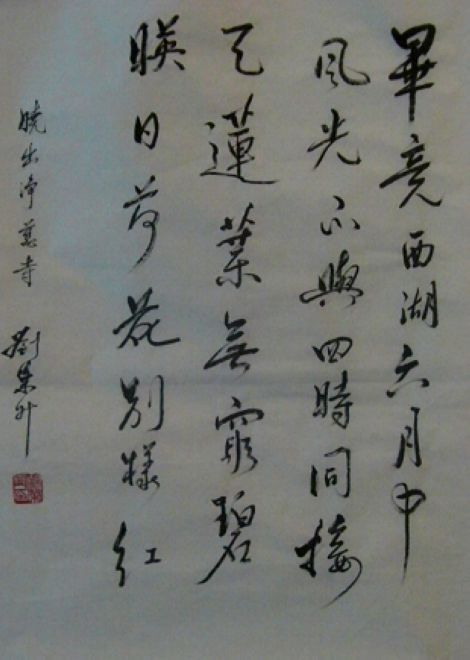 畢竟西湖六月中
風光不與四時同接
天蓮葉無窮碧
暎日荷花别樣紅
曉出淨慈寺
劉集外